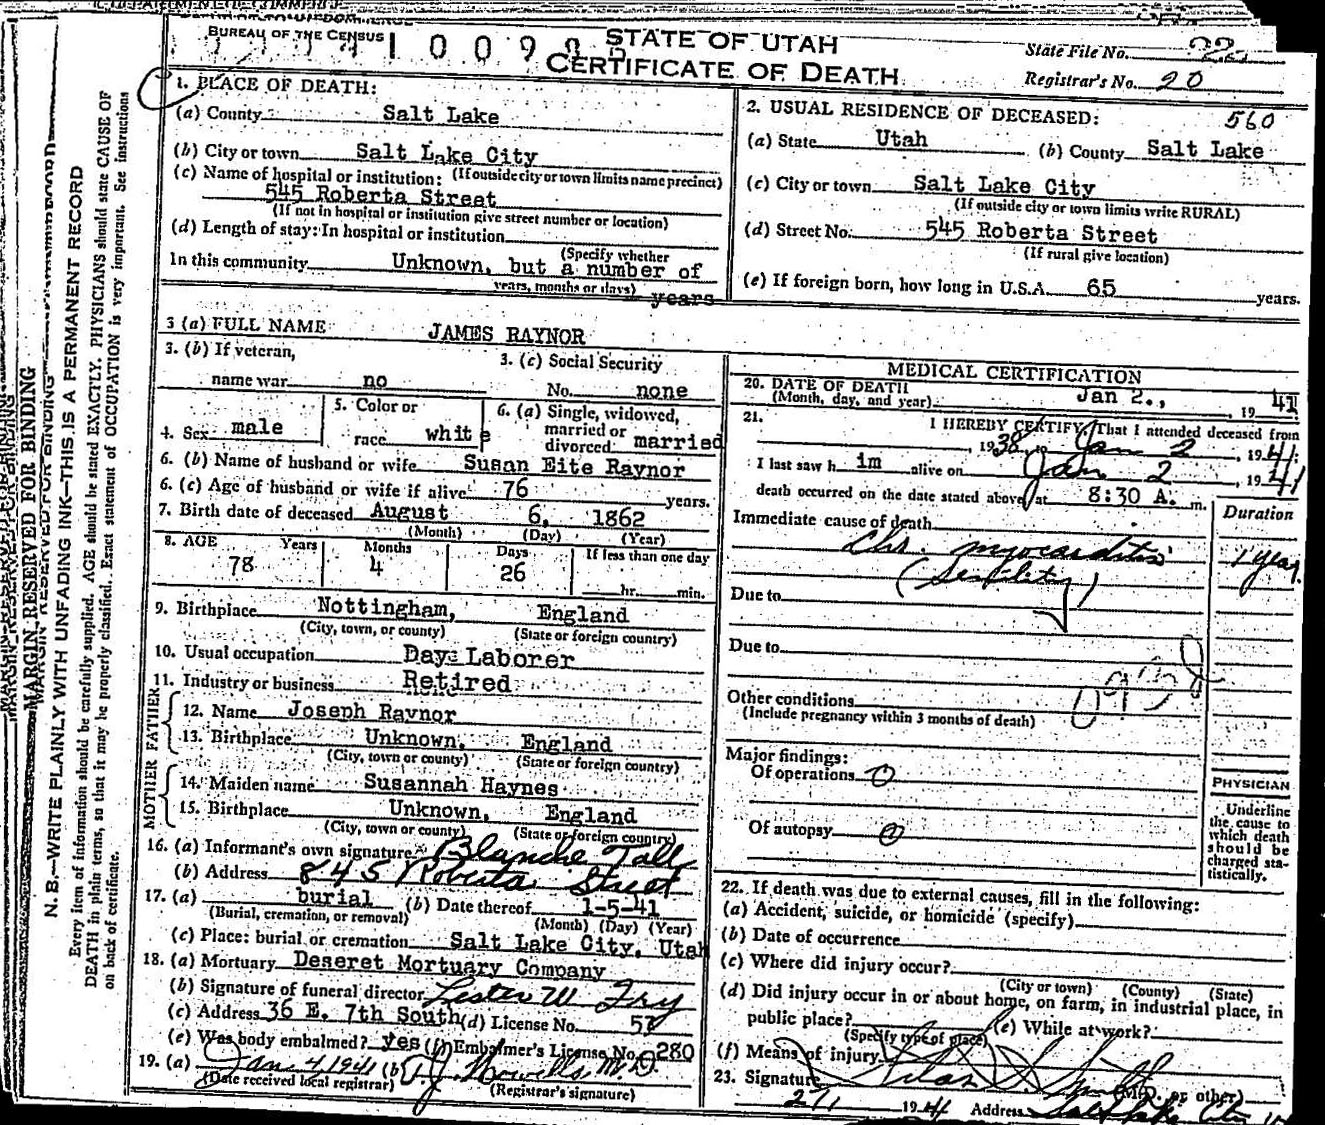 BUREAU OF THE CENSUS
STATE OF UTAH
CERTIFICATE OF DEATH
State File No. 22
Registrar's No. 20
1. PLACE OF DEATH:
(a) County Salt Lake
(b) City or town Salt Lake City
(If outside city or town limits name precinct)
(c) Name of hospital or institution:
545 Roberta Street
(If not in hospital or institution give street number or location)
(d) Length of stay: In hospital or institution
(Specify whether
In this community Unknown, but a number of
years, months or days) years
2. USUAL RESIDENCE OF DECEASED: 560
(a) State Utah (b) County Salt Lake
(c) City or town Salt Lake City
(If outside city or town limits write RURAL)
(d) Street No. 545 Roberta Street
(If rural give location)
(e) If foreign born, how long in U.S.A. 65 years.
3 (a) FULL NAME JAMES RAYNOR
3. (b) If veteran,
name war no
3. (c) Social Security
No. none
4. Sex male
5. Color or
race white
6. (a) Single, widowed,
married or
divorced married
6. (b) Name of husband or wife Susan Eite Raynor
6. (c) Age of husband or wife if alive 76 years.
7. Birth date of deceased August 6, 1862
(Month) (Day) (Year)
8. AGE Years Months Days If less than one day
78 4 26 hr. min.
9. Birthplace Nottingham, England
(City, town, or county) (State or foreign country)
10. Usual occupation Day Laborer
11. Industry or business Retired
FATHER
12. Name Joseph Raynor
13. Birthplace Unknown, England
(City, town or county) (State or foreign country)
MOTHER
14. Maiden name Susannah Haynes
15. Birthplace Unknown, England
(City, town or county) (State or foreign country)
16. (a) Informant's own signature Blanche Tall
(b) Address 845 Roberta Street
17. (a) burial (b) Date thereof 1-5-41
(Burial, cremation, or removal) (Month) (Day) (Year)
(c) Place: burial or cremation Salt Lake City, Utah
18. (a) Mortuary Deseret Mortuary Company
(b) Signature of funeral director Lester W Fry
(c) Address 36 E. 7th South (d) License No.
(e) Was body embalmed? yes (f) Embalmer's License No. 280
19. (a) Jan 4 1941 (b) Howells M.D.
(Date received local registrar) (Registrar's signature)
MEDICAL CERTIFICATION
20. DATE OF DEATH
(Month, day, and year) Jan 2., , 19 41
21. I HEREBY CERTIFY, That I attended deceased from
, 1938, to Jan 2 , 1941.
I last saw h im alive on Jan 2 , 1941
death occurred on the date stated above, at 8:30 A. m.
Duration
Immediate cause of death
Chr. myocarditis 1 year.
(Senility)
Due to
Due to
Other conditions
(Include pregnancy within 3 months of death)
Major findings:
Of operations 0
Of autopsy 0
PHYSICIAN
Underline
the cause to
which death
should be
charged sta-
tistically.
22. If death was due to external causes, fill in the following:
(a) Accident, suicide, or homicide (specify)
(b) Date of occurrence
(c) Where did injury occur?
(City or town) (County) (State)
(d) Did injury occur in or about home, on farm, in industrial place, in
public place? (e) While at work?
(Specify type of place)
(f) Means of injury
23. Signature (M.D. or other)
1941 Address Salt Lake City
MARGIN RESERVED FOR BINDING
N. B.—WRITE PLAINLY WITH UNFADING INK—THIS IS A PERMANENT RECORD
Every item of information should be carefully supplied. AGE should be stated EXACTLY. PHYSICIANS should state CAUSE OF
DEATH in plain terms, so that it may be properly classified. Exact statement of OCCUPATION is very important. See instructions
on back of certificate.